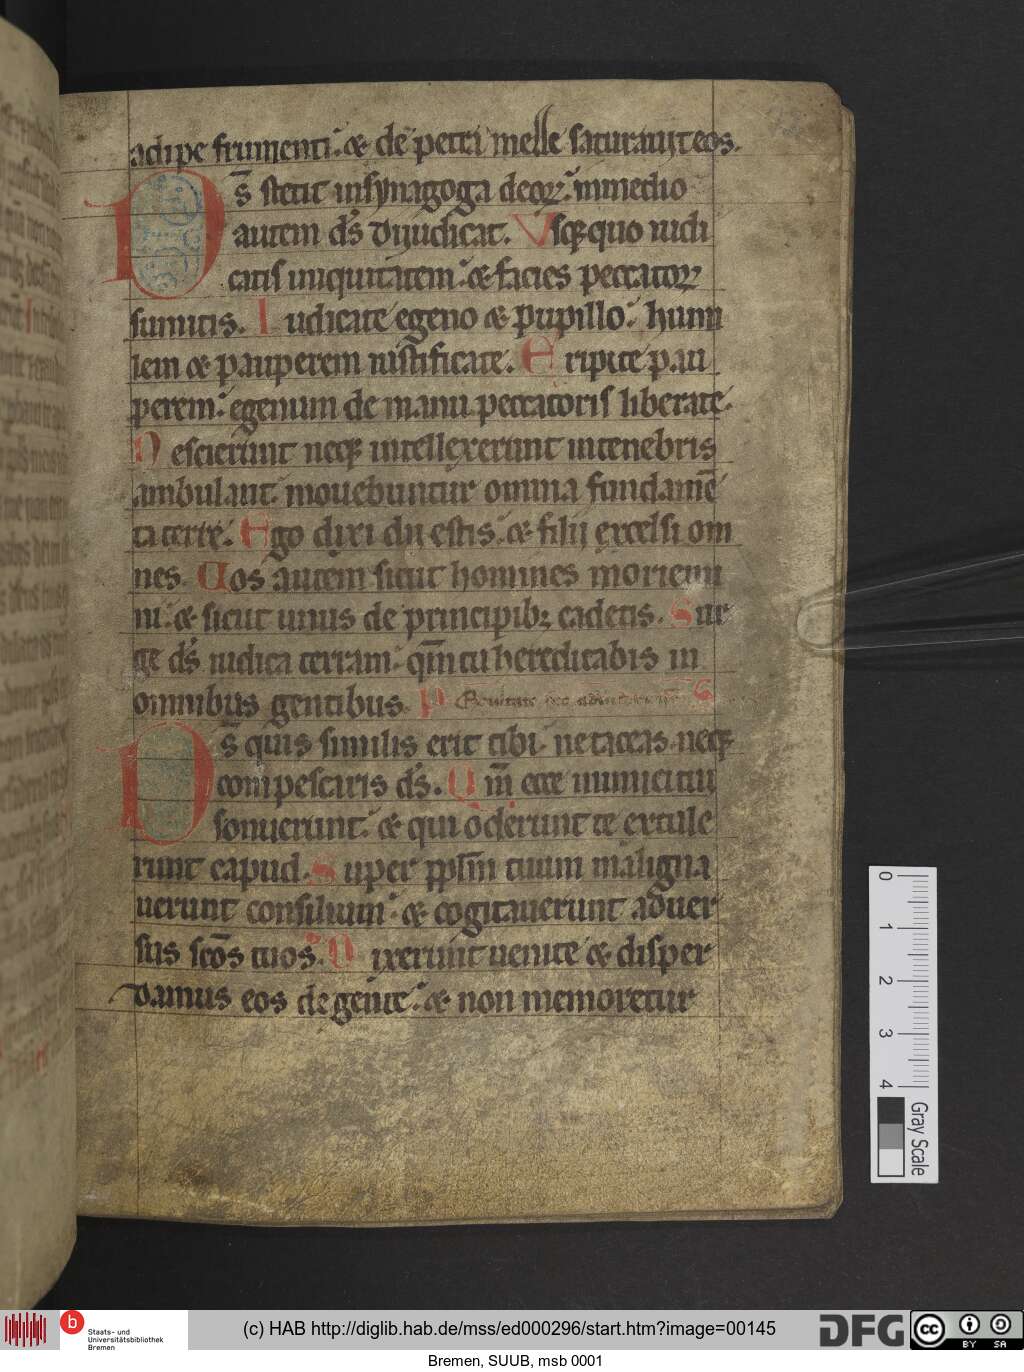 adipe frumenti. & de petra melle saturauit eos.
Ds̄ stetit in synagoga deoꝝ. in medio
autem ds̄ diiudicat. Vsqꝫ quo iudi
catis iniquitatem. & facies peccatoꝝ
sumitis. Iudicate egeno & pupillo. humi
lem & pauperem iustificate. Eripite pau
perem. egenum de manu peccatoris liberate.
Nescierunt neqꝫ intellexerunt in tenebris
ambulant. mouebuntur omnia fundamē
ta terrę. Ego dixi dii estis. & filii excelsi om
nes. Uos autem sicut homines moriemi
ni. & sicut unus de principibꝫ cadetis. Sur
ge ds̄ iudica terram. qm̄ tu hereditabis in
omnibus gentibus.
Ds̄ quis similis erit tibi. ne taceas. neqꝫ
compescaris ds̄. Qm̄ ecce inimici tui
sonuerunt. & qui oderunt te extule
runt capud. Super ꝑplm̄ tuum maligna
uerunt consilium. & cogitauerunt aduer
sus scōs tuos. Dixerunt uenite & disper
damus eos de gente. & non memoretur
0
1
2
3
4
Gray Scale
b
Staats- und
Universitätsbibliothek
Bremen
(c) HAB http://diglib.hab.de/mss/ed000296/start.htm?image=00145
DFG
cc
BY SA
Bremen, SUUB, msb 0001